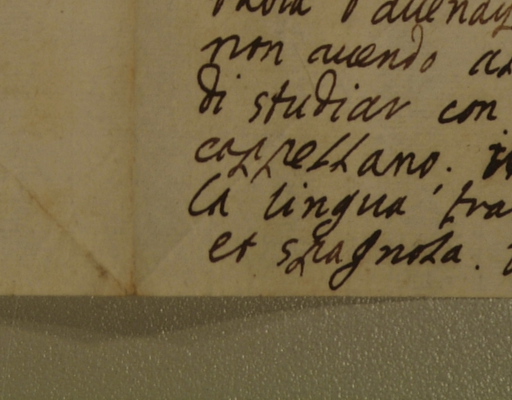 non auendo
di studiar con
cappellano.
la lingua fra
et spagnola.